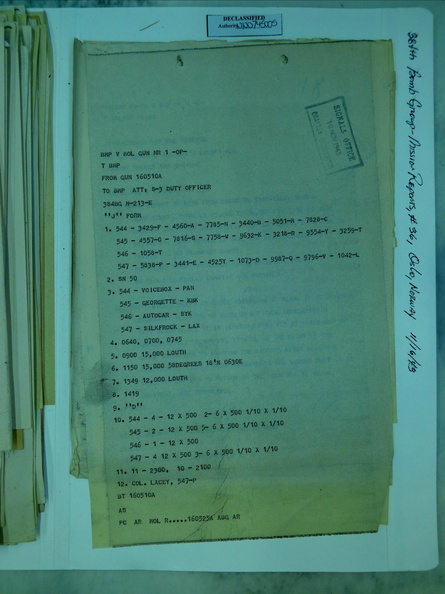 DECLASSIFIED
Authority NND745005
SIGNALS OFFICE
384th Bomb Group - Mission Reports, # 36, Oslo, Norway 11/16/43
BMP V HOL QUN NR 1 -OP-
T BMP
FROM QUN 160510A
TO BMP ATT: D-3 DUTY OFFICER
384BG M-213-E
"J" FORM
1. 544 - 3429-F - 4560-A - 7785-H - 3440-G - 5051-H - 7828-C
545 - 4557-O - 7816-N - 7758-W - 9632-K - 3218-R - 9554-Y - 3259-T
546 - 1058-T
547 - 5838-P - 3441-E - 4525T - 1073-D - 9987-Q - 9796-V - 1042-L
2. BH 50
3. 544 - VOICEBOX - PAN
545 - GEORGETTE - RBK
546 - AUTOCAR - BTK
547 - SILKFROCK - LAX
4. 0640, 0700, 0745
5. 0900 15,000 LOUTH
6. 1150 15,000 58DEGREES 18'N 0630E
7. 1549 12,000 LOUTH
8. 1419
9. "D"
10. 544 - 4 - 12 X 500 2- 6 X 500 1/10 X 1/10
545 - 2 - 12 X 500 5- 6 X 500 1/10 X 1/10
546 - 1 - 12 X 500
547 - 4 12 X 500 3- 6 X 500 1/10 X 1/10
11. 11 - 2300, 10 - 2100
12. COL. LACEY, 547-P
BT 160510A
AR
PG AR HOL R.....160525A AHG AR